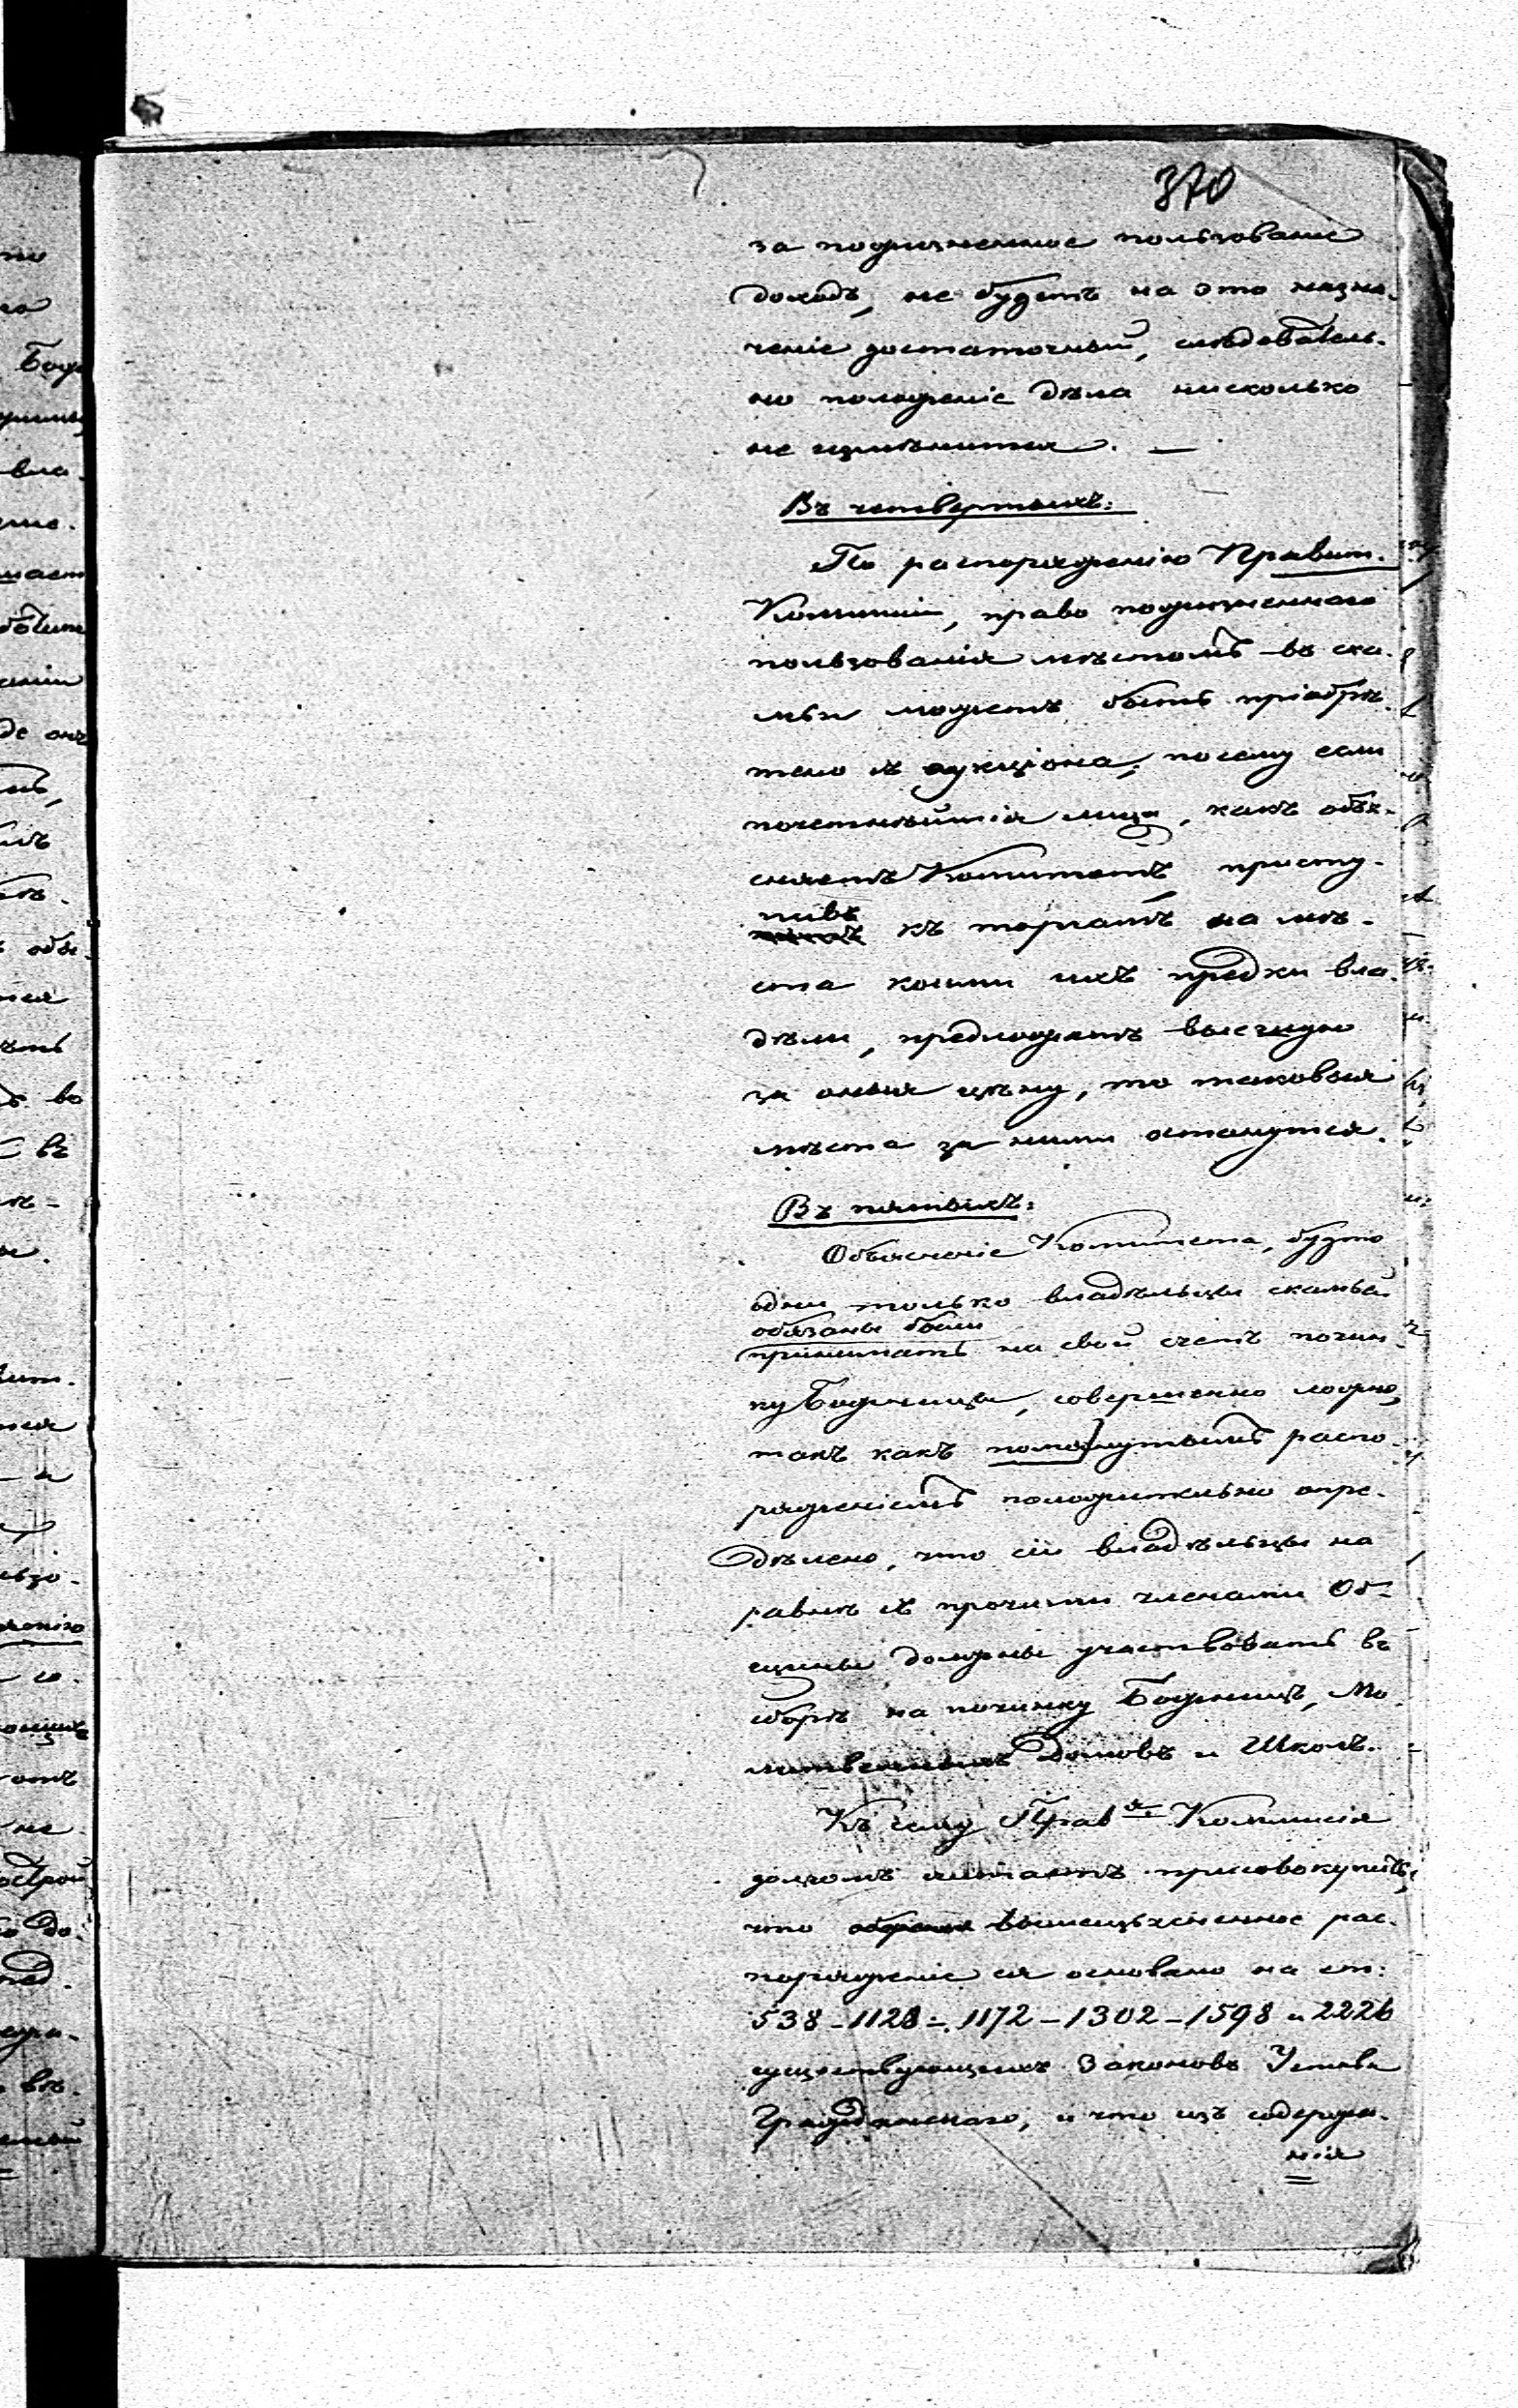 370
за пожизненное пользованіе
доходъ, не будетъ на это назна-
ченіе достаточный, слѣдователь-
но положеніе дѣла нисколько
не измѣнится. —
Въ четвертыхъ:
По распоряженію Правит.
Коммисіи, право пожизненнаго
пользованія мѣстомъ въ ска-
мьи можетъ быть пріобрѣ-
тено съ аукціона, посему если
почетнѣйшія лица, какъ объя-
сняетъ Комитетъ, присту-
пивъ
къ торгамъ на мѣ-
ста коими ихъ предки вла-
дѣли, предложатъ высшую
за оныя цѣну, то таковыя
мѣста за ними останутся.
Въ пятыхъ:
Объясненіе Комитета, будто
одни только владѣльцы скамьей
обязаны были
принимать на свой счетъ почин-
ку Божницы, совершенно ложно,
такъ какъ распо-
ряженіемъ положительно опре-
дѣлено, что сіи владѣльцы на
равнѣ съ прочими членами Об-
щины должны участвовать въ
сборѣ на починку Божницъ, Мо-
литвенныхъ Домовъ и Школъ.
Къ сему Прав Коммисія
долгомъ считаетъ присовокупить,
что вышеизъясненное рас-
поряженіе ея основано на ст:
538 - 1128 - 1172 - 1302 - 1598 и 2226
существующихъ Законовъ Устава
Гражданскаго, и что изъ содержа-
нія